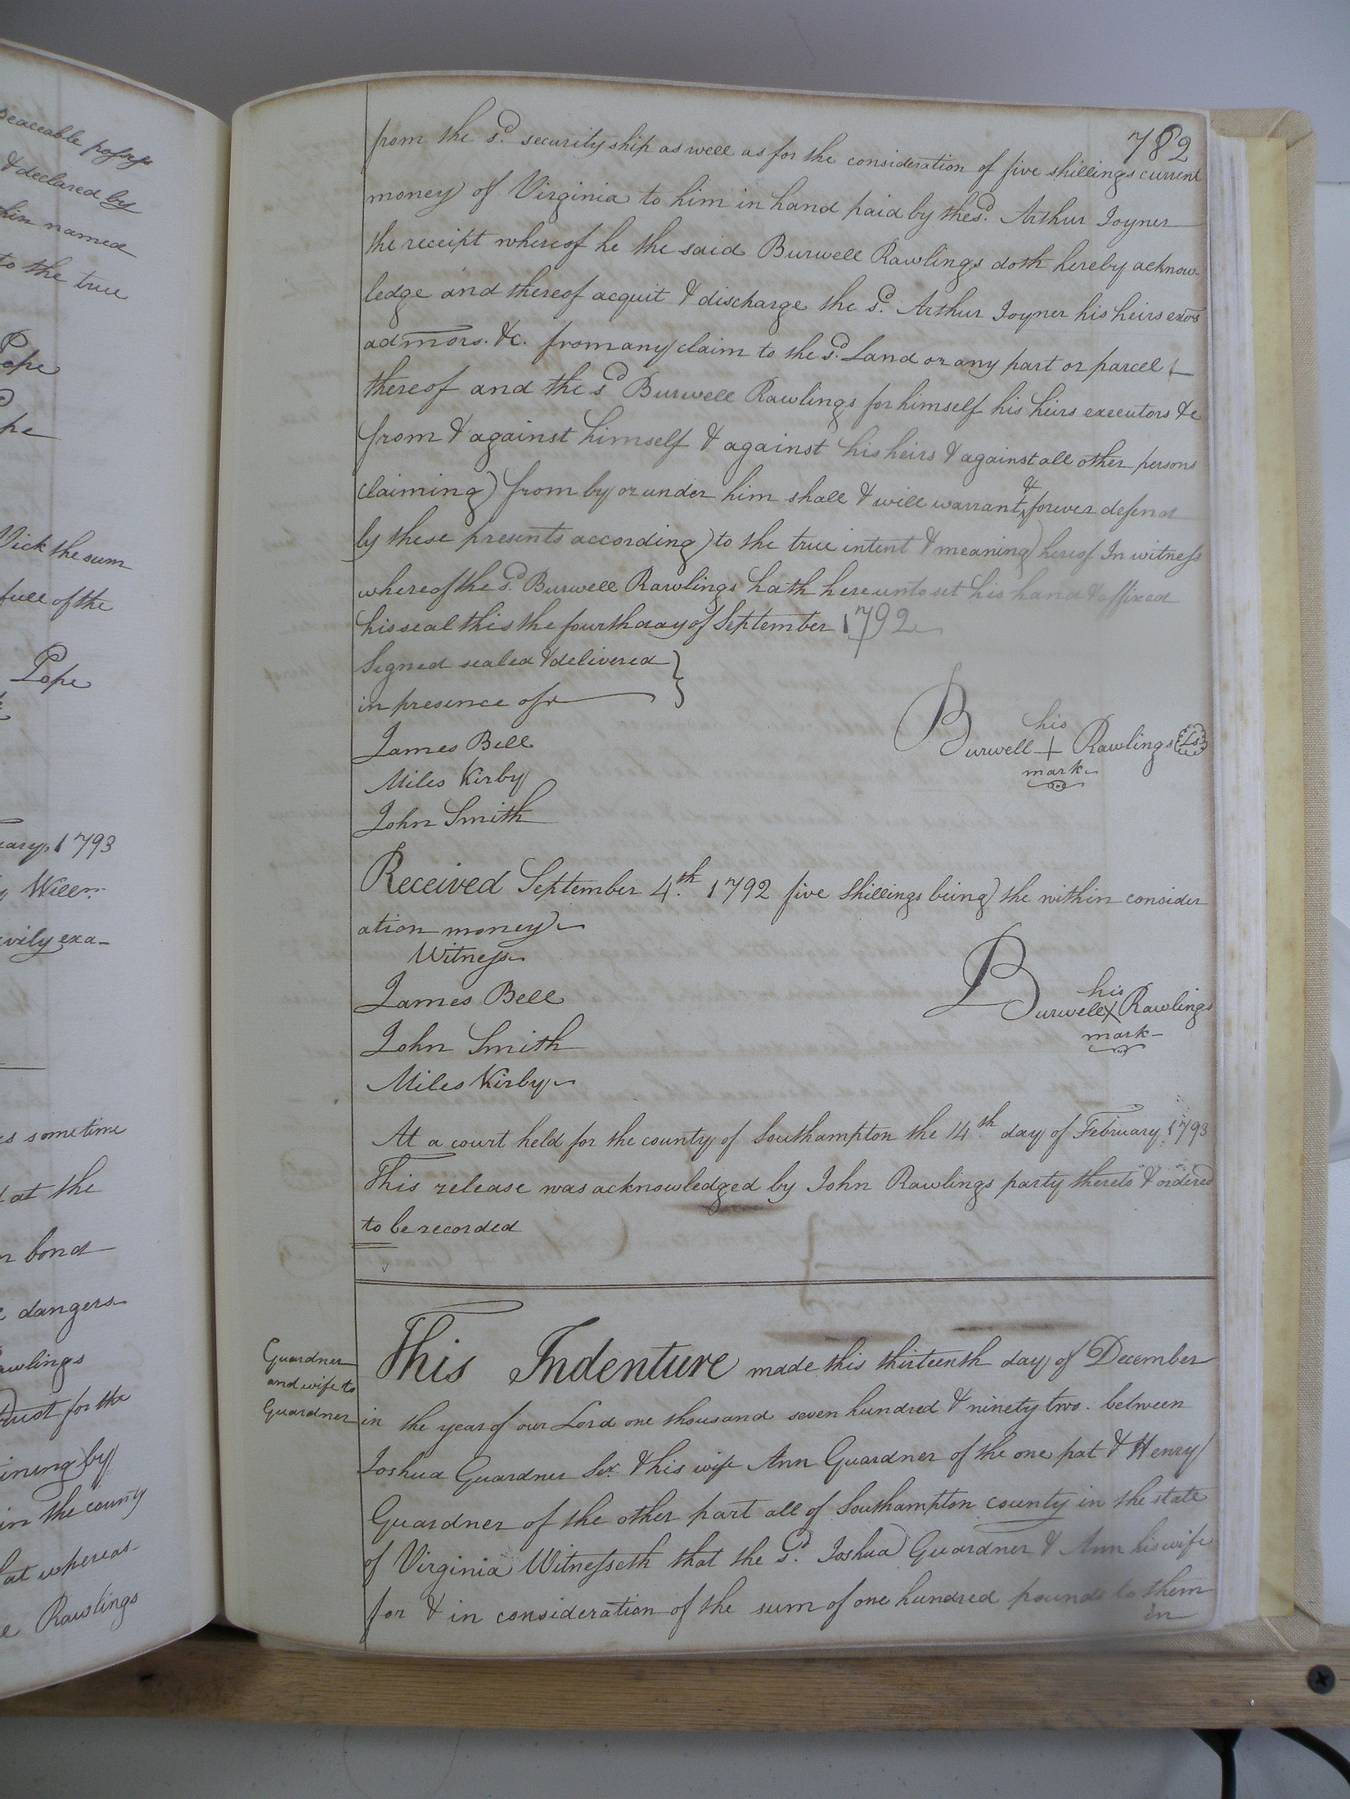 peaceable possess
& declared by
him named
to the true
Pope
pe
Vick the sum
full of the
Pope
uary 1793
Willm.
ivily exa-
es sometime
at the
n bond
dangers
awlings
trust for the
ining by
in the county
hat whereas
e Rawlings
782
from the sd. security ship as well as for the consideration of five shillings current
money of Virginia to him in hand paid by the sd. Arthur Joyner
the receipt whereof he the said Burwell Rawlings doth hereby acknow
ledge and thereof acquit & discharge the sd. Arthur Joyner his heirs exors
admors. &c. from any claim to the sd. Land or any part or parcel
thereof and the sd Burwell Rawlings for himself his heirs executors &c
from & against himself & against his heirs & against all other persons
claiming from by or under him shall & will warrant & forever defend
by these presents according to the true intent & meaning hereof In witness
whereof the sd. Burwell Rawlings hath hereunto set his hand & affixed
his seal this the fourth day of September 1792
Signed sealed & delivered
in presence of
James Bell
Miles Kirby
John Smith
his
Burwell + Rawlings Ls
mark
Received September 4.th 1792 five Shillings being the within consider
ation money
Witness
James Bell
John Smith
Miles Kirby
his
Burwell X Rawlings
mark
At a court held for the county of Southampton the 14.th day of February 1793
This release was acknowledged by John Rawlings party thereto & ordered
to be recorded
Guardner
and wife to
Guardner
This Indenture made this thirteenth day of December
in the year of our Lord one thousand seven hundred & ninety two between
Joshua Guardner Sr. & his wife Ann Guardner of the one pat & Henry
Guardner of the other part all of Southampton county in the state
of Virginia Witnesseth that the sd. Joshua Guardner & Ann his wife
for & in consideration of the sum of one hundred pounds to them
in